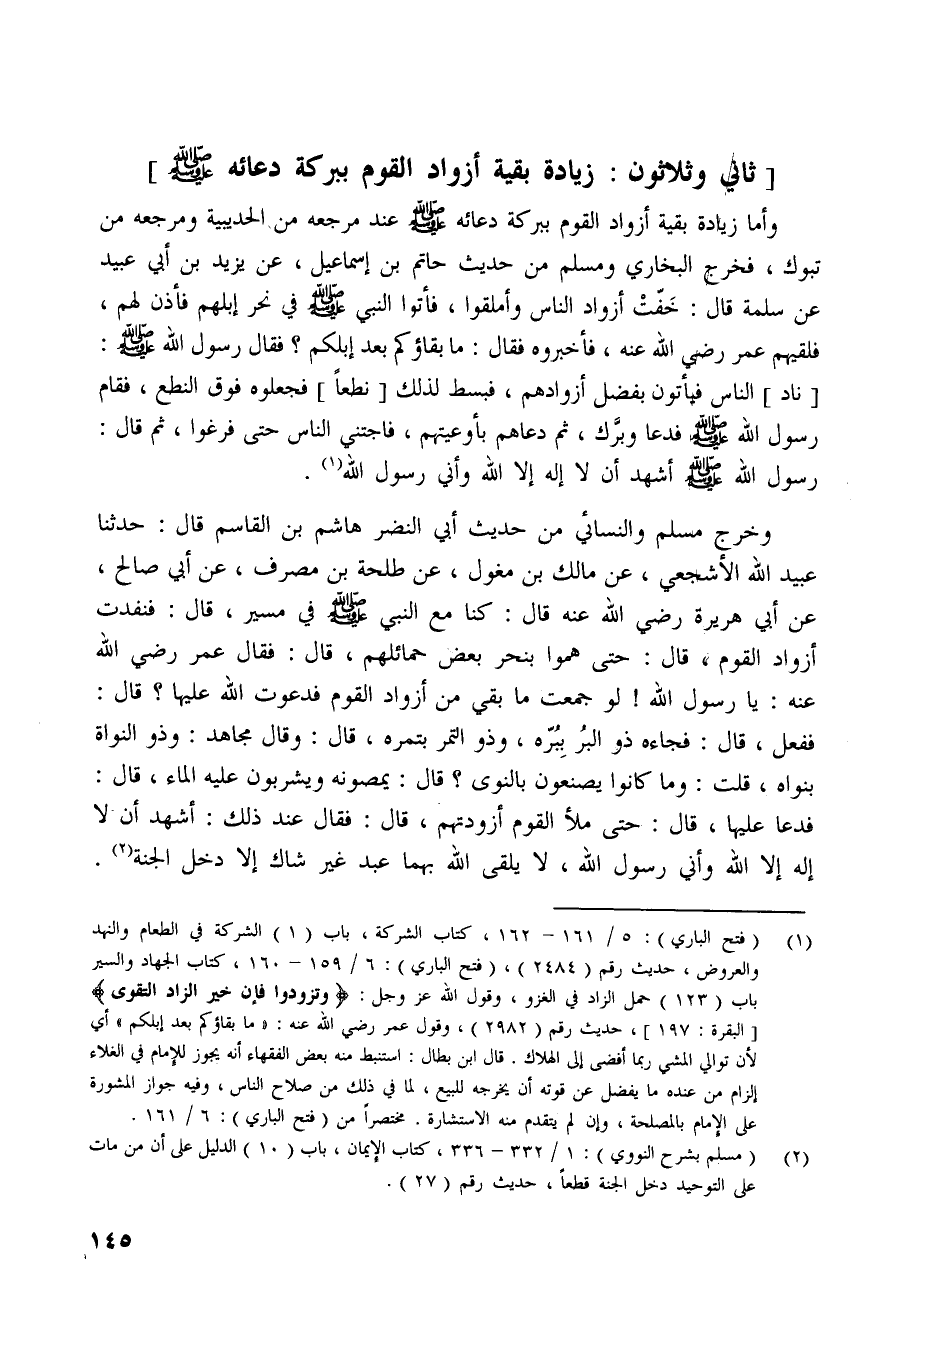 [ ثاني وثلاثون : زيادة بقية أزواد القوم ببركة دعائه ﷺ ]
وأما زيادة بقية أزواد القوم ببركة دعائه ﷺ عند مرجعه من الحديبية ومرجعه من
تبوك ، فخرج البخاري ومسلم من حديث حاتم بن إسماعيل ، عن يزيد بن أبي عبيد
عن سلمة قال : خَفّتْ أزواد الناس وأملقوا ، فأتوا النبي ﷺ في نحر إبلهم فأذن لهم ،
فلقيهم عمر رضي الله عنه ، فأخبروه فقال : ما بقاؤكم بعد إبلكم ؟ فقال رسول الله ﷺ :
[ ناد ] الناس فيأتون بفضل أزوادهم ، فبسط لذلك [ نطعاً ] فجعلوه فوق النطع ، فقام
رسول الله ﷺ فدعا وبرَّك ، ثم دعاهم بأوعيتهم ، فاجتني الناس حتى فرغوا ، ثم قال :
رسول الله ﷺ أشهد أن لا إله إلا الله وأني رسول الله(١) .
وخرج مسلم والنسائي من حديث أبي النضر هاشم بن القاسم قال : حدثنا
عبيد الله الأشجعي ، عن مالك بن مغول ، عن طلحة بن مصرف ، عن أبي صالح ،
عن أبي هريرة رضي الله عنه قال : كنا مع النبي ﷺ في مسير ، قال : فنفدت
أزواد القوم ، قال : حتى هموا بنحر بعض حمائلهم ، قال : فقال عمر رضي الله
عنه : يا رسول الله ! لو جمعت ما بقي من أزواد القوم فدعوت الله عليها ؟ قال :
ففعل ، قال : فجاءه ذو البرُ بِبُرّه ، وذو التمر بتمره ، قال : وقال مجاهد : وذو النواة
بنواه ، قلت : وما كانوا يصنعون بالنوى ؟ قال : يمصونه ويشربون عليه الماء ، قال :
فدعا عليها ، قال : حتى ملأ القوم أزودتهم ، قال : فقال عند ذلك : أشهد أن لا
إله إلا الله وأني رسول الله ، لا يلقى الله بهما عبد غير شاك إلا دخل الجنة(٢) .
(١) ( فتح الباري ) : ٥ / ١٦١ – ١٦٢ ، كتاب الشركة ، باب ( ١ ) الشركة في الطعام والنهد
والعروض ، حديث رقم ( ٢٤٨٤ ) ، ( فتح الباري ) : ٦ / ١٥٩ – ١٦٠ ، كتاب الجهاد والسير
باب ( ١٢٣ ) حمل الزاد في الغزو ، وقول الله عز وجل : ﴿ وتزودوا فإن خير الزاد التقوى ﴾
[ البقرة : ١٩٧ ] ، حديث رقم ( ٢٩٨٢ ) ، وقول عمر رضي الله عنه : « ما بقاؤكم بعد إبلكم » أي
لأن توالي المشي ربما أفضى إلى الهلاك . قال ابن بطال : استنبط منه بعض الفقهاء أنه يجوز للإمام في الغلاء
إلزام من عنده ما يفضل عن قوته أن يخرجه للبيع ، لما في ذلك من صلاح الناس ، وفيه جواز المشورة
على الإمام بالمصلحة ، وإن لم يتقدم منه الاستشارة . مختصراً من ( فتح الباري ) : ٦ / ١٦١ .
(٢) ( مسلم بشرح النووي ) : ١ / ٣٣٢ – ٣٣٦ ، كتاب الإيمان ، باب ( ١٠ ) الدليل على أن من مات
على التوحيد دخل الجنة قطعاً ، حديث رقم ( ٢٧ ) .
١٤٥